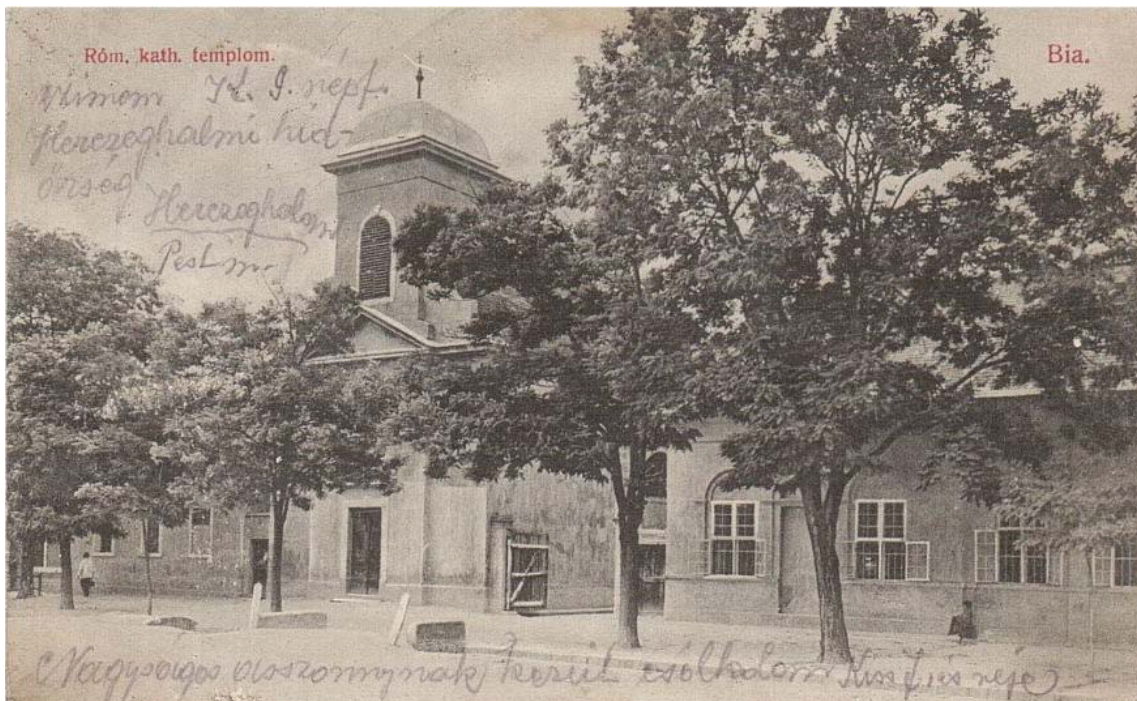 Róm. kath. templom.
Bia.
népf.
Herczeghalmi hid-
őrség
Herczeghalom
Pest m.
Nagyságos asszonynak kezeit csókolom Kiss J. és neje